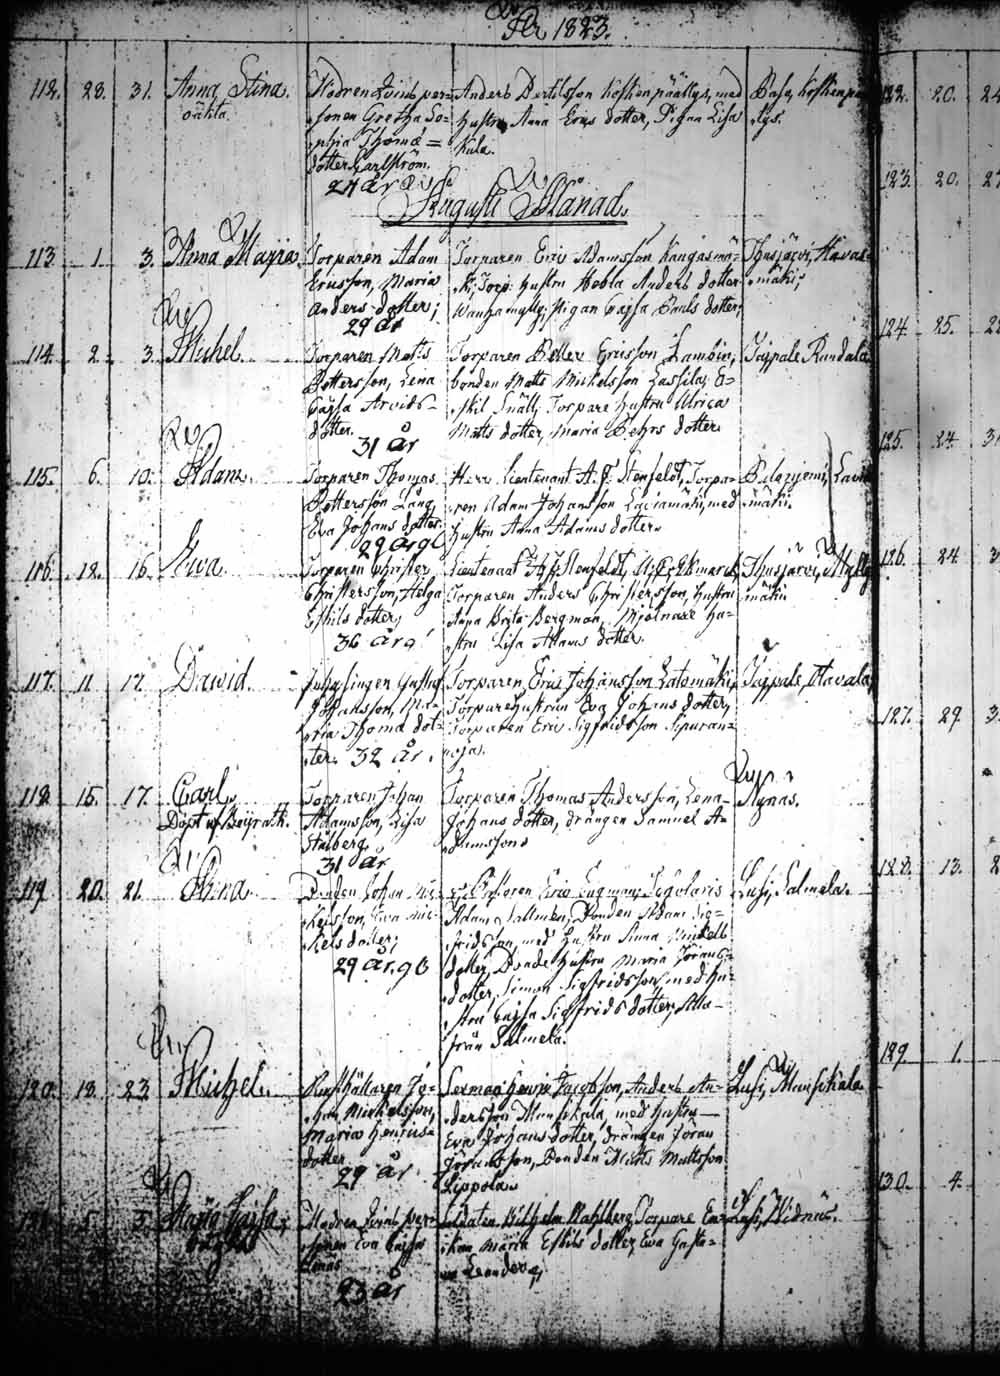 År 1823.
112. 28. 31. Anna Stina.
oäkta.
Modren Qvins per=
sonen Gretha So=
phia Thomæ=
dotter Carlström.
24 år
Anders Bertilsson Koskenpäällys, med
Hustru Anna Erics dotter, Pigan Lisa
Kula.
Augusti Månad.
113. 1. 3. Anna Majia.
Torparen Adam
Ericsson, Maria
Anders dotter;
29 år
Torparen Eric Adamsson Kangasmä=
ki; Torp: Hustru Hebla Anders dotter
Pigan Cajsa Pauls dotter;
Thusjärvi, Havas=
mäki;
114. 2. 3. Michel.
Torparen Matts
Pettersson, Lena
Cajsa Arvids=
dotter.
31 år
Torparen Petter Ericsson
bonden Matts Michelsson Lassila; E=
skil Snäll; Torpare Hustru Ulrica
Matts dotter, Maria Pehrs dotter.
Jäppale Randala
115. 6. 10. Adam.
Torparen Thomas
Pettersson Lång
Eva Johans dotter.
29 år
Herr Lieutenant A. F. Stenfeldt, Torpa=
ren Adam Johansson Laviamäki, med
Hustru Anna Adams dotter.
mäki.
116. 12. 16. Ewa.
Torparen Christer
Christersson, Helga
Eskils dotter;
36 år
Lieutenant Stenfeldt, Ekmarck,
Torparen Anders Christersson, Hustru
Anna Brita Bergman, Mjölnare Hu=
stru Lisa Adams dotter.
Thusjärvi, Mylly
mäki
117. 11. 17. Dawid.
Gustaf
Johansson, Ma=
ria Thomæ dot=
ter. 32 år.
Torparen Eric Johansson Latomäki,
Torpare Hustrun Eva Johans dotter,
Torparen Eric Sigfridsson Sipuran=
oja.
Jäppale, Havala
118. 15. 17. Carl.
Döpt af
Torparen Johan
Adamsson, Lisa
Stålberg.
31 år
Torparen Thomas Andersson, Lena
Johans dotter, drängen Samuel A=
damsson
Nynäs.
119. 20. 21. Stina.
Bonden Johan Mi=
kelsson, Eva Mi=
kels dotter;
29 år.
Eric Engman;
Adam Sallmén, Bonden Adam Sig=
fridsson, med Hustru Anna Mickels
dotter, Bonde Hustru Maria Jörans
dotter, Simon Sigfridsson, med Hu=
stru Cajsa Sigfrids dotter; Alla
från Salmela.
Lusi, Salmela.
120. 18. 23. Michel.
Rusthållaren Jo=
han Michelsson,
Maria Henrics=
dotter
29 år
Sexman Henric Jacobsson, Anders An=
dersson Munsikala, med Hustru
Eva Johans dotter, drängen Jöran
Jöransson, Bonden Matts Mattsson
Lippola
Lusi, Munsikala
Maria Cajsa
Modren Qvins per=
sonen Eva Cajsa
23 år
Soldaten Wilhelm Wahlberg, Torpare En=
kan Maria Eskils dotter, Eva Gusta=
va Leander
Lusi, Widnäs.
122. 20. 24
123. 20. 27
124. 25. 2
125. 24. 3
126. 24. 3
127. 29. 3
128. 13. 2
129. 1.
130. 4.